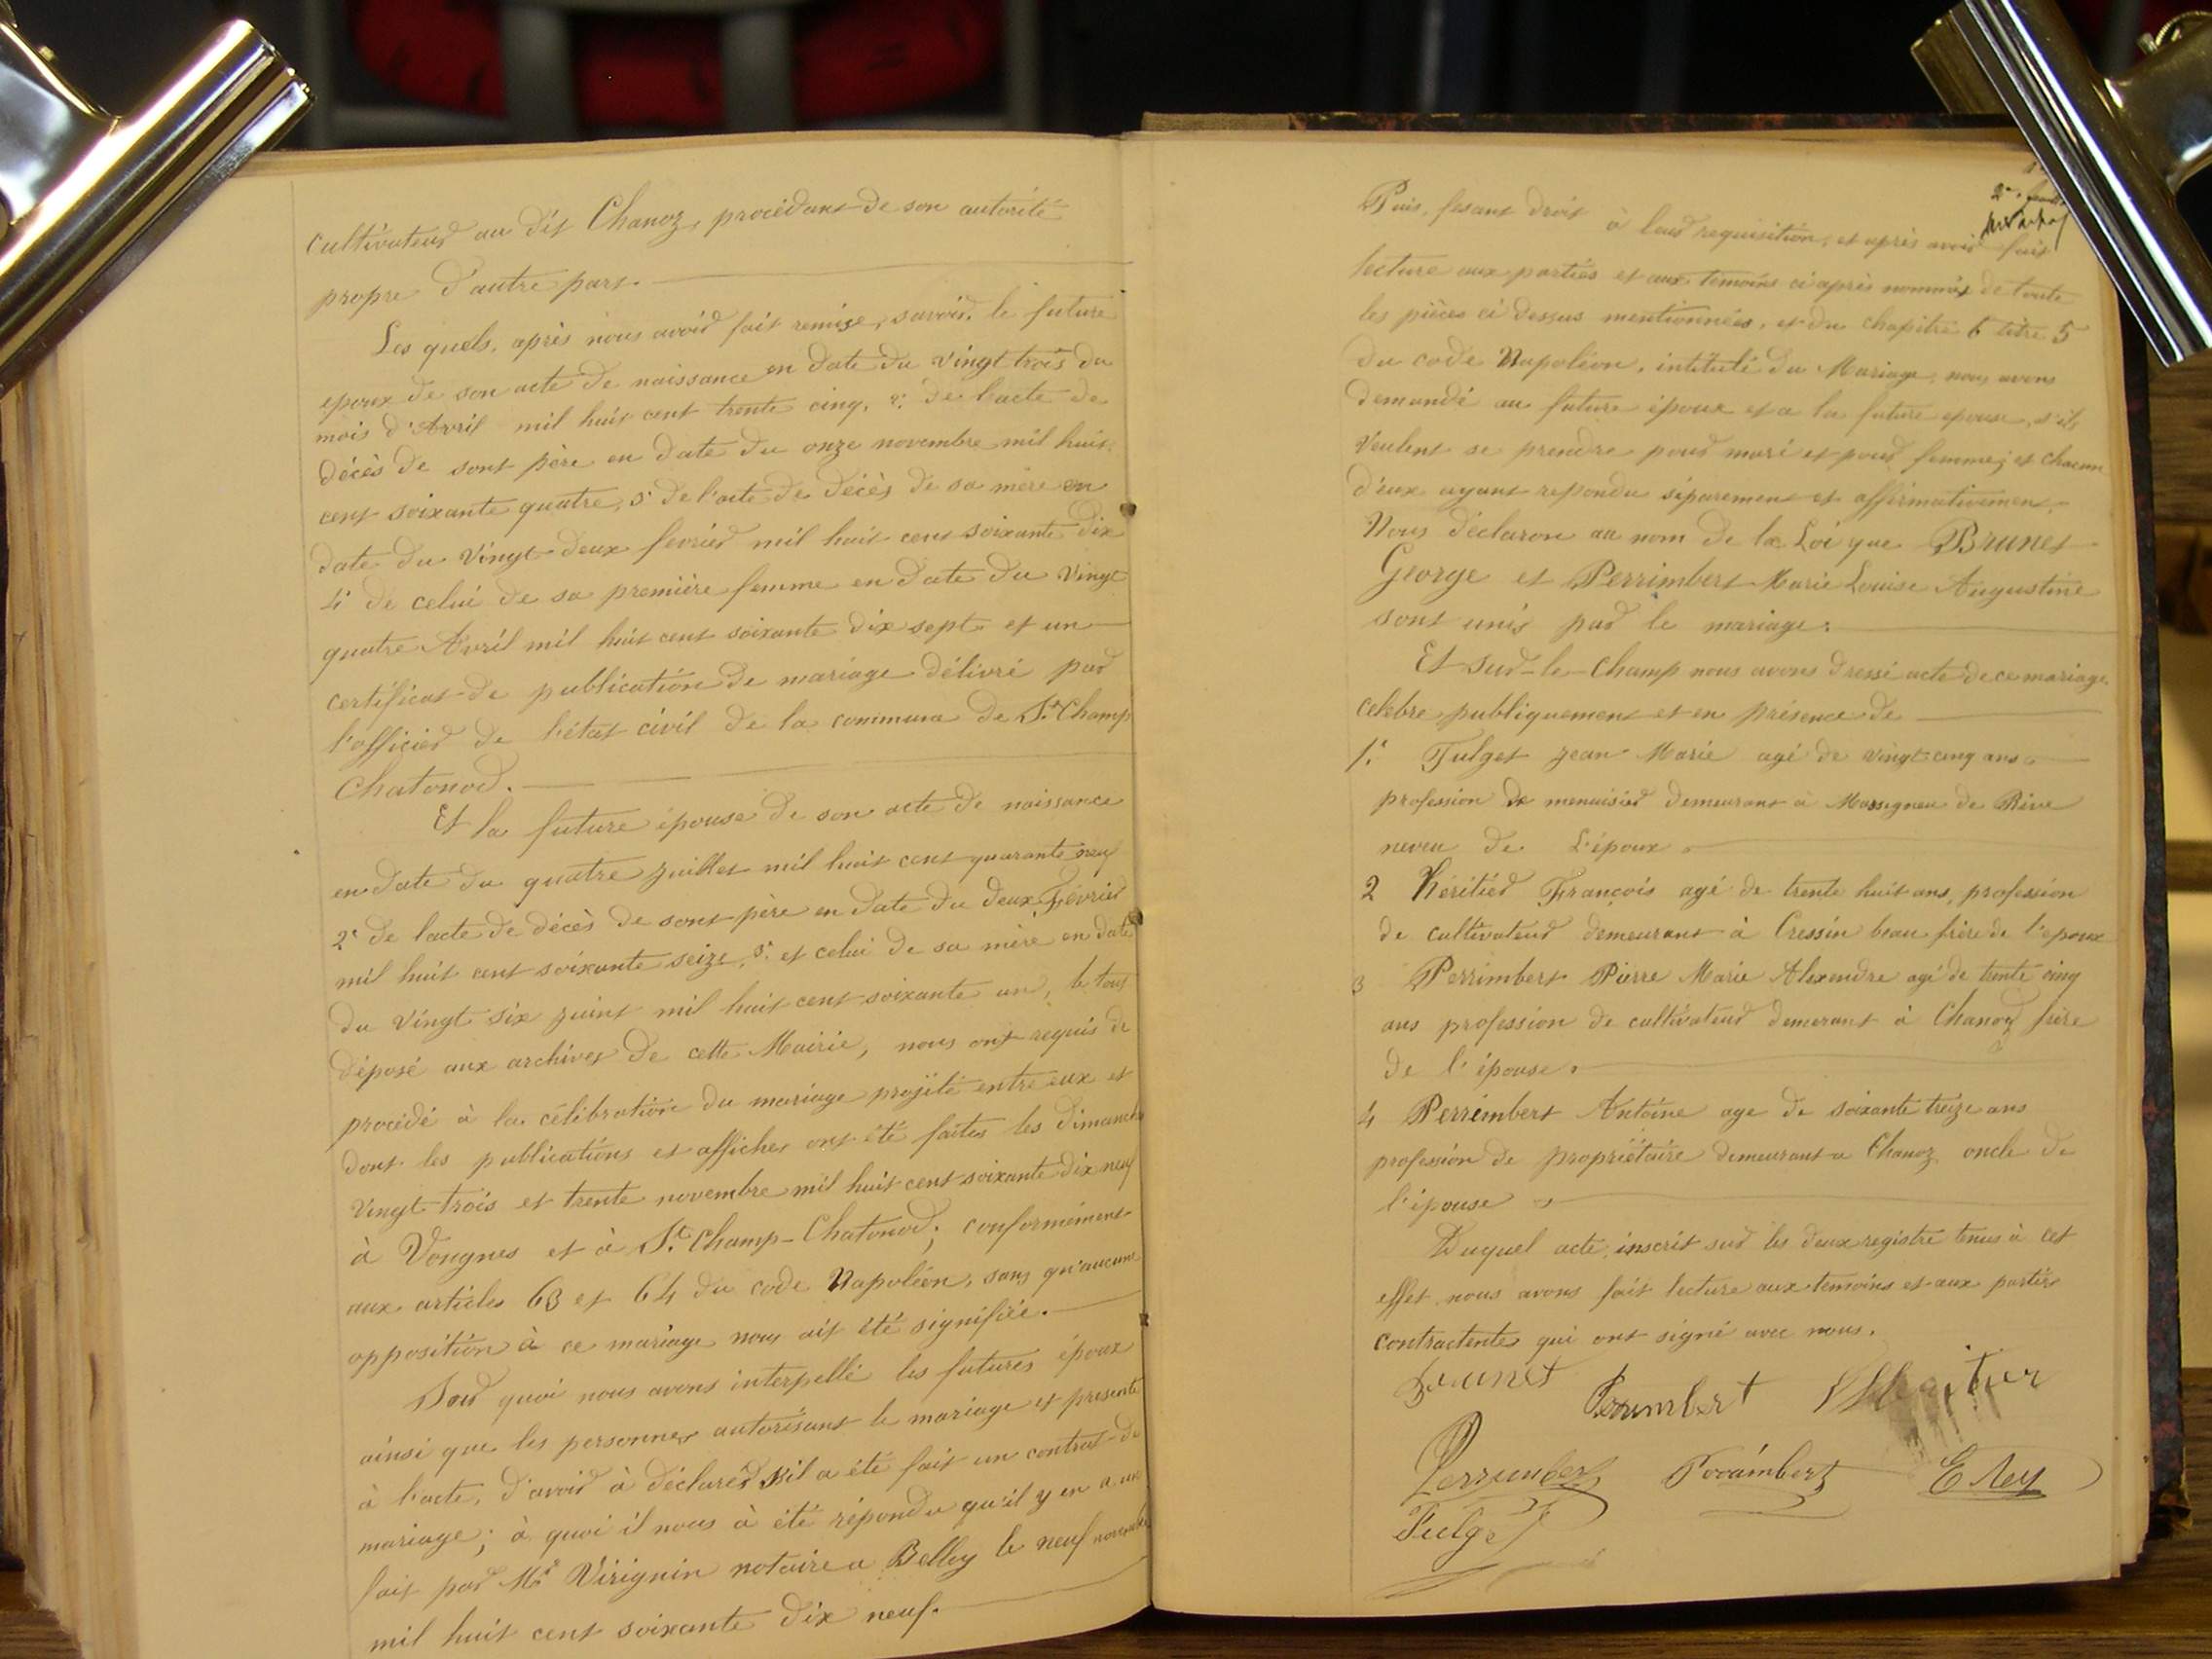 cultivateur au dit Chanoz, procédant de son autorité
propre d'autre part.
Les quels, après nous avoir fait remise, savoir. le future
epoux de son acte de naissance en date du vingt trois du
mois d'Avril mil huit cent trente cinq, 2: de l'acte de
décès de sont père en date du onze novembre mil huit
cent soixante quatre, 3: de l'acte de décès de sa mère en
date du vingt deux fevrier mil huit cent soixante dix
4: de celui de sa première femme en date du vingt
quatre Avril mil huit cent soixante dix sept et un
certificat de publication de mariage délivré par
l'officier de l'état civil de la commune de St Champ
Chatonod.
Et la future épouse de son acte de naissance
en date du quatre juillet mil huit cent quarante neuf
2: de lacte de décès de sont père en date du deux Février
mil huit cent soixante seize, 3: et celui de sa mère en date
du vingt six juint mil huit cent soixante un, le tout
déposé aux archives de cette Mairie, nous ont requis de
procédé à la célébration du mariage projité entre eux et
dont les publications et affiches ont été faites les dimanche
vingt trois et trente novembre mil huit cent soixante dix neuf
à Vongnes et à St Champ-Chatonod; conformément
aux articles 63 et 64 du code Napoléon, sans qu'aucune
opposition à ce mariage nous ait été signifiée.
Sour quoi nous avons interpellé les futures époux
ainsi que les personnes autorisant le mariage et présente
à l'acte, d'avoir à déclarer s'il a été fait un contrat de
mariage; à quoi il nous à été répondu qu'il y en a un
fait par Me Virignin notaire a Belley le neuf novembre
mil huit cent soixante dix neuf.
2e feuillet
Puis, fesant droit à leur requisition, et après avoir fait
lecture aux parties et aux témoins ci après nommés de toute
les pièces ci dessus mentionnées, et du chapitre 6 titre 5
du code Napoléon, intitulé du Mariage, nous avons
demandé au future époux et a la future epouse, s'ils
veulent se prendre pour mari et pour femme; et chacun
d'eux ayant repondu séparement et affirmativement,
Nous déclaron au nom de la Loi que Brunet
George et Perrimbert Marie Louise Augustine
sont unis par le mariage.
Et sur-le-champ nous avons dressé acte de ce mariage
celebre publiquement et en présence de
1: Tulget Jean Marie agé de vingt cinq ans
profession de menuisier demeurant à Massigneu de Rive
neveu de L'époux.
2 Héritier François agé de trente huit ans, profession
de cultivateur demeurant à Cressin beau frère de l'epoux
3 Perrimbert Pierre Marie Alexendre agé de trente cinq
ans profession de cultivateur demerant à Chanoz frère
de l'épouse.
4 Perrimbert Antoine age de soixante treize ans
profession de propriétaire demeurant a Chanoz oncle de
l'épouse
Duquel acte, inscrit sur les deux registre tenus à cet
effet nous avons fait lecture aux temoins et aux partis
contractentes qui ont signé avec nous.
Brunet Perrimbert Héritier
Perrimbert Perrimbert E Rey
Tulget